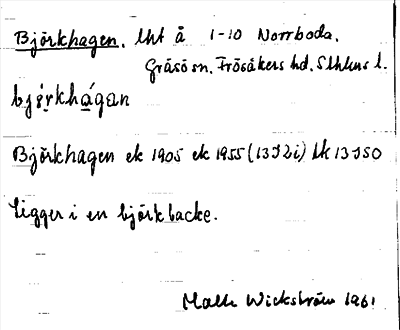 Björkhagen, lht å 1-10 Norrboda.
Gräsö sn, Frösåkers hd, Sthlms l.
bjǿrkhágan
Björkhagen ek 1905 ek 1955 (13I2i) tk 13JSO
Ligger i en björkbacke.
Malte Wickström 1961